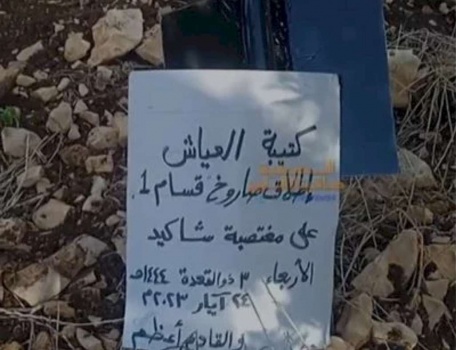 كتيبة العياش
إطلاق صاروخ قسام 1
على مغتصبة شاكيد
الأربعاء ٣ ذو القعدة ١٤٤٤هـ
٢٤ آيار ٢٠٢٣م
والقادم أعظم